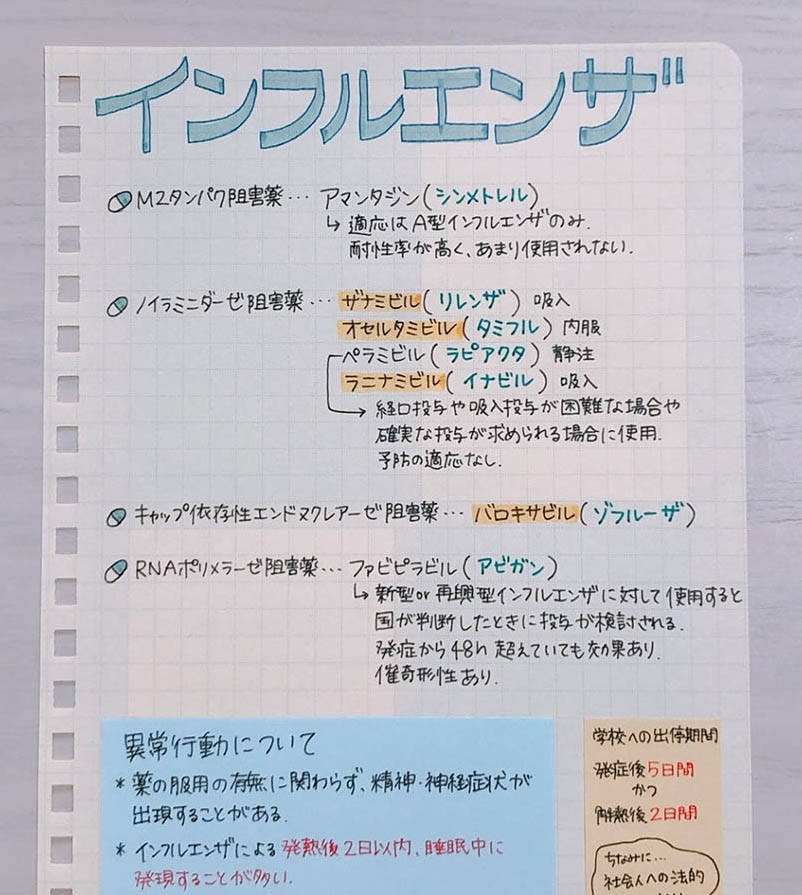 インフルエンザ
M2タンパク阻害薬… アマンタジン(シンメトレル)
↳ 適応はA型インフルエンザのみ.
耐性率が高く、あまり使用されない.
ノイラミニダーゼ阻害薬… ザナミビル(リレンザ) 吸入
オセルタミビル(タミフル) 内服
ペラミビル(ラピアクタ) 静注
ラニナミビル(イナビル) 吸入
→ 経口投与や吸入投与が困難な場合や
確実な投与が求められる場合に使用.
予防の適応なし.
キャップ依存性エンドヌクレアーゼ阻害薬… バロキサビル(ゾフルーザ)
RNAポリメラーゼ阻害薬… ファビピラビル(アビガン)
↳ 新型or再興型インフルエンザに対して使用すると
国が判断したときに投与が検討される.
発症から48h 超えていても効果あり.
催奇形性あり.
異常行動について
* 薬の服用の有無に関わらず、精神・神経症状が
出現することがある.
* インフルエンザによる発熱後2日以内、睡眠中に
発現することが多い.
学校への出停期間
発症後5日間
かつ
解熱後2日間
ちなみに…
社会人への法的